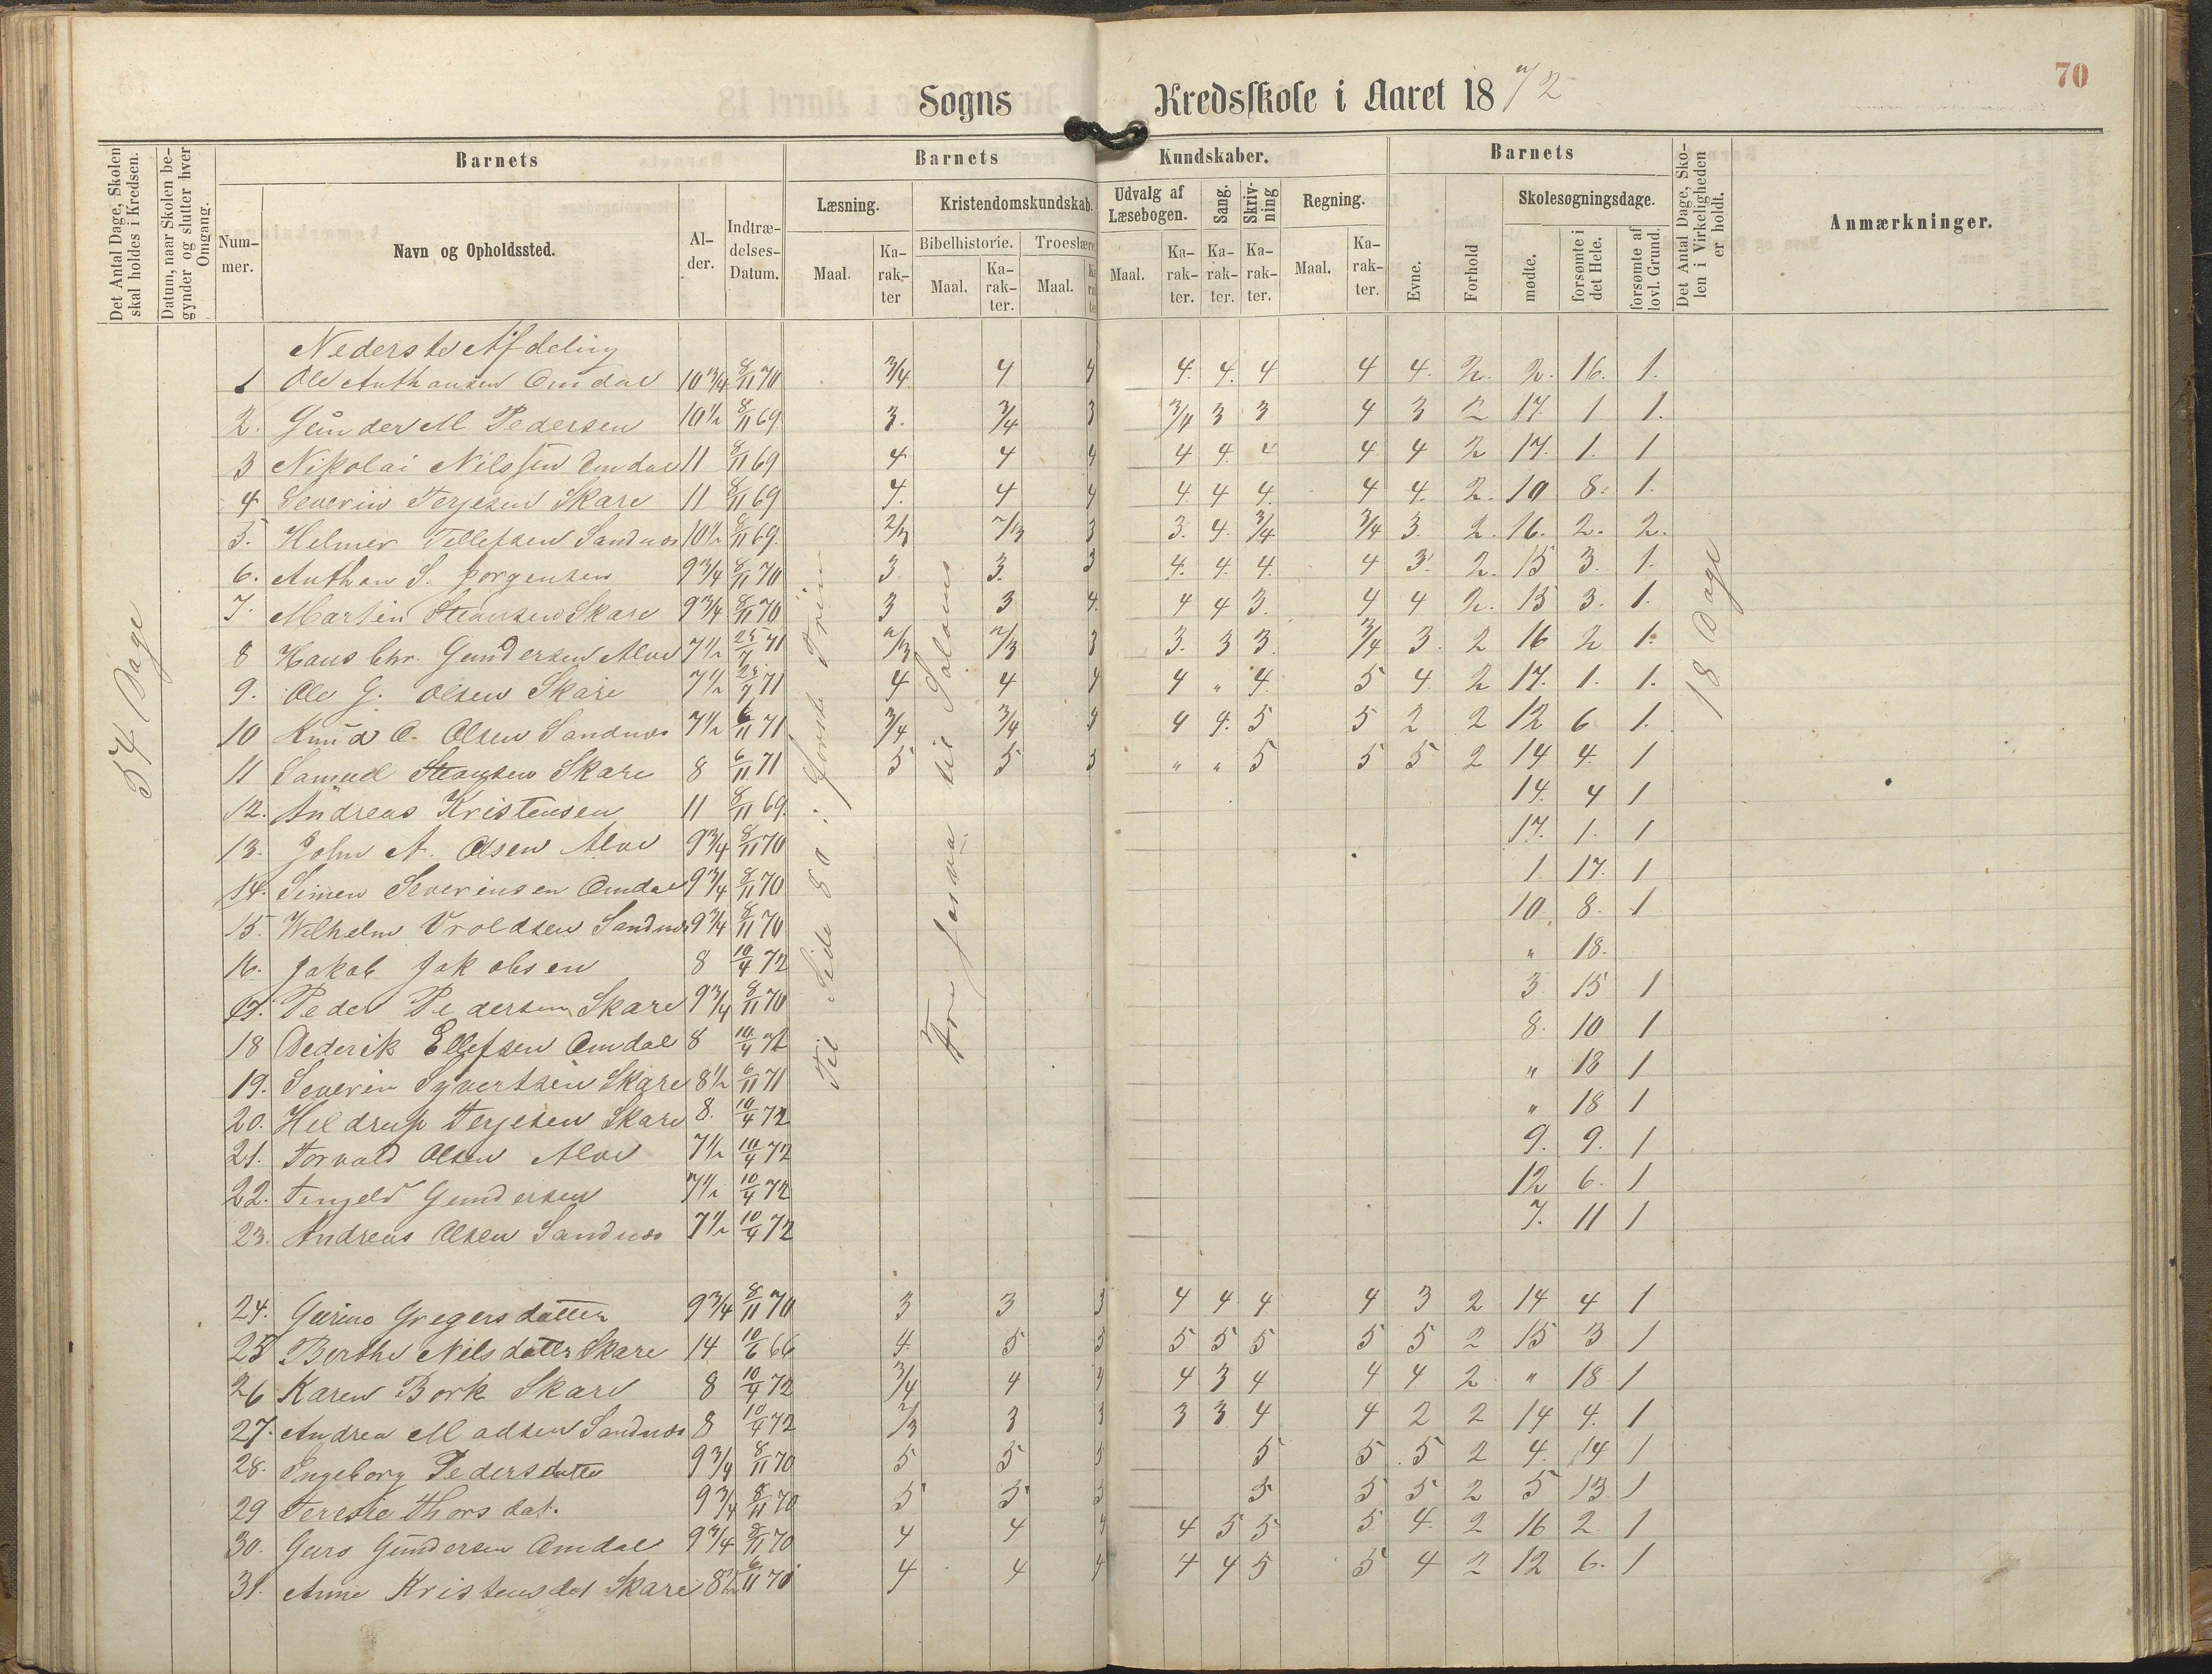 70
Sogns Kredsskole i Aaret 18 /72
Det Antal Dage, Skolen skal holdes i Kredsen.
Datum, naar Skolen begynder og slutter hver Omgang.
Barnets
Num-mer.
Navn og Opholdssted.
Al-der.
Indtræ-delses-Datum.
Barnets Kundskaber.
Læsning.
Maal.
Ka-rak-ter
Kristendomskundskab.
Bibelhistorie.
Maal.
Ka-rak-ter.
Troeslære
Maal.
Udvalg af Læsebogen.
Maal.
Ka-rak-ter.
Sang.
Ka-rak-ter.
Skriv-ning
Ka-rak-ter.
Regning.
Maal.
Ka-rak-ter.
Barnets
Evne.
Forhold
Skolesøgningsdage.
mødte.
forsømte i det Hele.
forsømte af lovl. Grund.
Det Antal Dage, Sko-len i Virkeligheden er holdt.
Anmærkninger.
54 Dage
Til Side 80 i første Trin
Fra Josva til Salomo
18 Dage
Nederste Afdeling
1 Ole Anthonsen Omdal 10 3/4 8/11 70 3/4 4 4 4. 4. 4 4 4. 2. 2. 16. 1.
2. Gunder M. Pedersen 10 1/2 8/11 69 3. 3/4 3 3/4 3 3 4 3 2 17. 1 1.
3 Nikolai Nilssen Omdal 11 8/11 69 4 4 4 4 4. 4 4 4 2 17. 1. 1
4 Severin Terjesen Skare 11 8/11 69 4. 4 4 4. 4 4. 4 4. 2. 10 8. 1.
5. Helmer Tellefsen Sandnæs 10 1/2 8/11 69. 2/3 2/3 3 3. 4. 3/4 3/4 3. 2. 16. 2. 2.
6. Anthon S. Jørgensen 9 3/4 8/11 70 3 3. 3 4. 4. 4. 4 3. 2. 15 3. 1.
7. Martin Steansen Skare 9 3/4 8/11 70 3 3 4. 4 4 3. 4 4 2. 15 3. 1.
8 Hans Chr. Gundersen Alve 7 1/2 25/7 71 2/3 2/3 3 3. 3 3. 3/4 3. 2 16 2 1.
9. Ole G. Olsen Skare 7 1/2 25/7 71 4 4 4 4 " 4. 5 4. 2 17. 1. 1.
10 Knud O. Olsen Sandnæs 7 1/2 6/11 71 3/4 3/4 4 4 4. 5 5 2 2 12 6 1.
11 Samuel Steansen Skare 8 6/11 71 5 5 5 " " 5 5 5 2 14 4. 1
12. Andreas Kristensen 11 8/11 69. 14. 4 1
13. John A. Olsen Alve 9 3/4 8/11 70 17. 1. 1
14. Simen Severinsen Omdal 9 3/4 8/11 70 1. 17. 1
15. Wilhelm Vroldsen Sandnæs 9 3/4 8/11 70 10 8. 1
16. Jakob Jakobsen 8 10/4 72 " 18.
17. Peder Pedersen Skare 9 3/4 8/11 70 3 15 1
18 Dederik Ellefsen Omdal 8 10/4 72 8. 10 1
19. Severin Syvertsen Skare 8 1/2 6/11 71 " 18 1
20. Heldrup Terjesen Skare 8. 10/4 72 " 18 1
21. Torvald Olsen Alve 7 1/2 10/4 72 9. 9. 1
22. Gundersen 7 1/2 10/4 72 12 6. 1
23. Andreas Olsen Sandnæs 7 1/2 10/4 72 7. 11 1
24. Gurine Gregersdatter 9 3/4 8/11 70 3 3 3 4 4 4 4 3 2 14 4 1
25 Berthe Nilsdatter Skare 14 10/6 66 4. 5 5 5 5 5 5 5 2 15 3 1
26 Karen Bork Skare 8 10/4 72 3/4 4 4 4 3 4 4 4 2 " 18 1
27. Andrea Madsen Sandnæs 8 10/4 72 2/3 3 3 3 3 4 4 2 2 14 4. 1
28. Ingeborg Pedersdatter 9 3/4 8/11 70 5 5 5 5 5 5 2 4. 14 1
29 Teresie Thorsdat. 9 3/4 8/11 70 5 5 5 5 5 5 2 5 13 1
30. Guro Gundersen Omdal 9 3/4 8/11 70 4 4 4 4 5 5 5 4. 2 16 2. 1
31. Anne Kristensdat Skare 8 1/2 6/11 70 4 4 4 4 4 5 5 4 2 12 6. 1